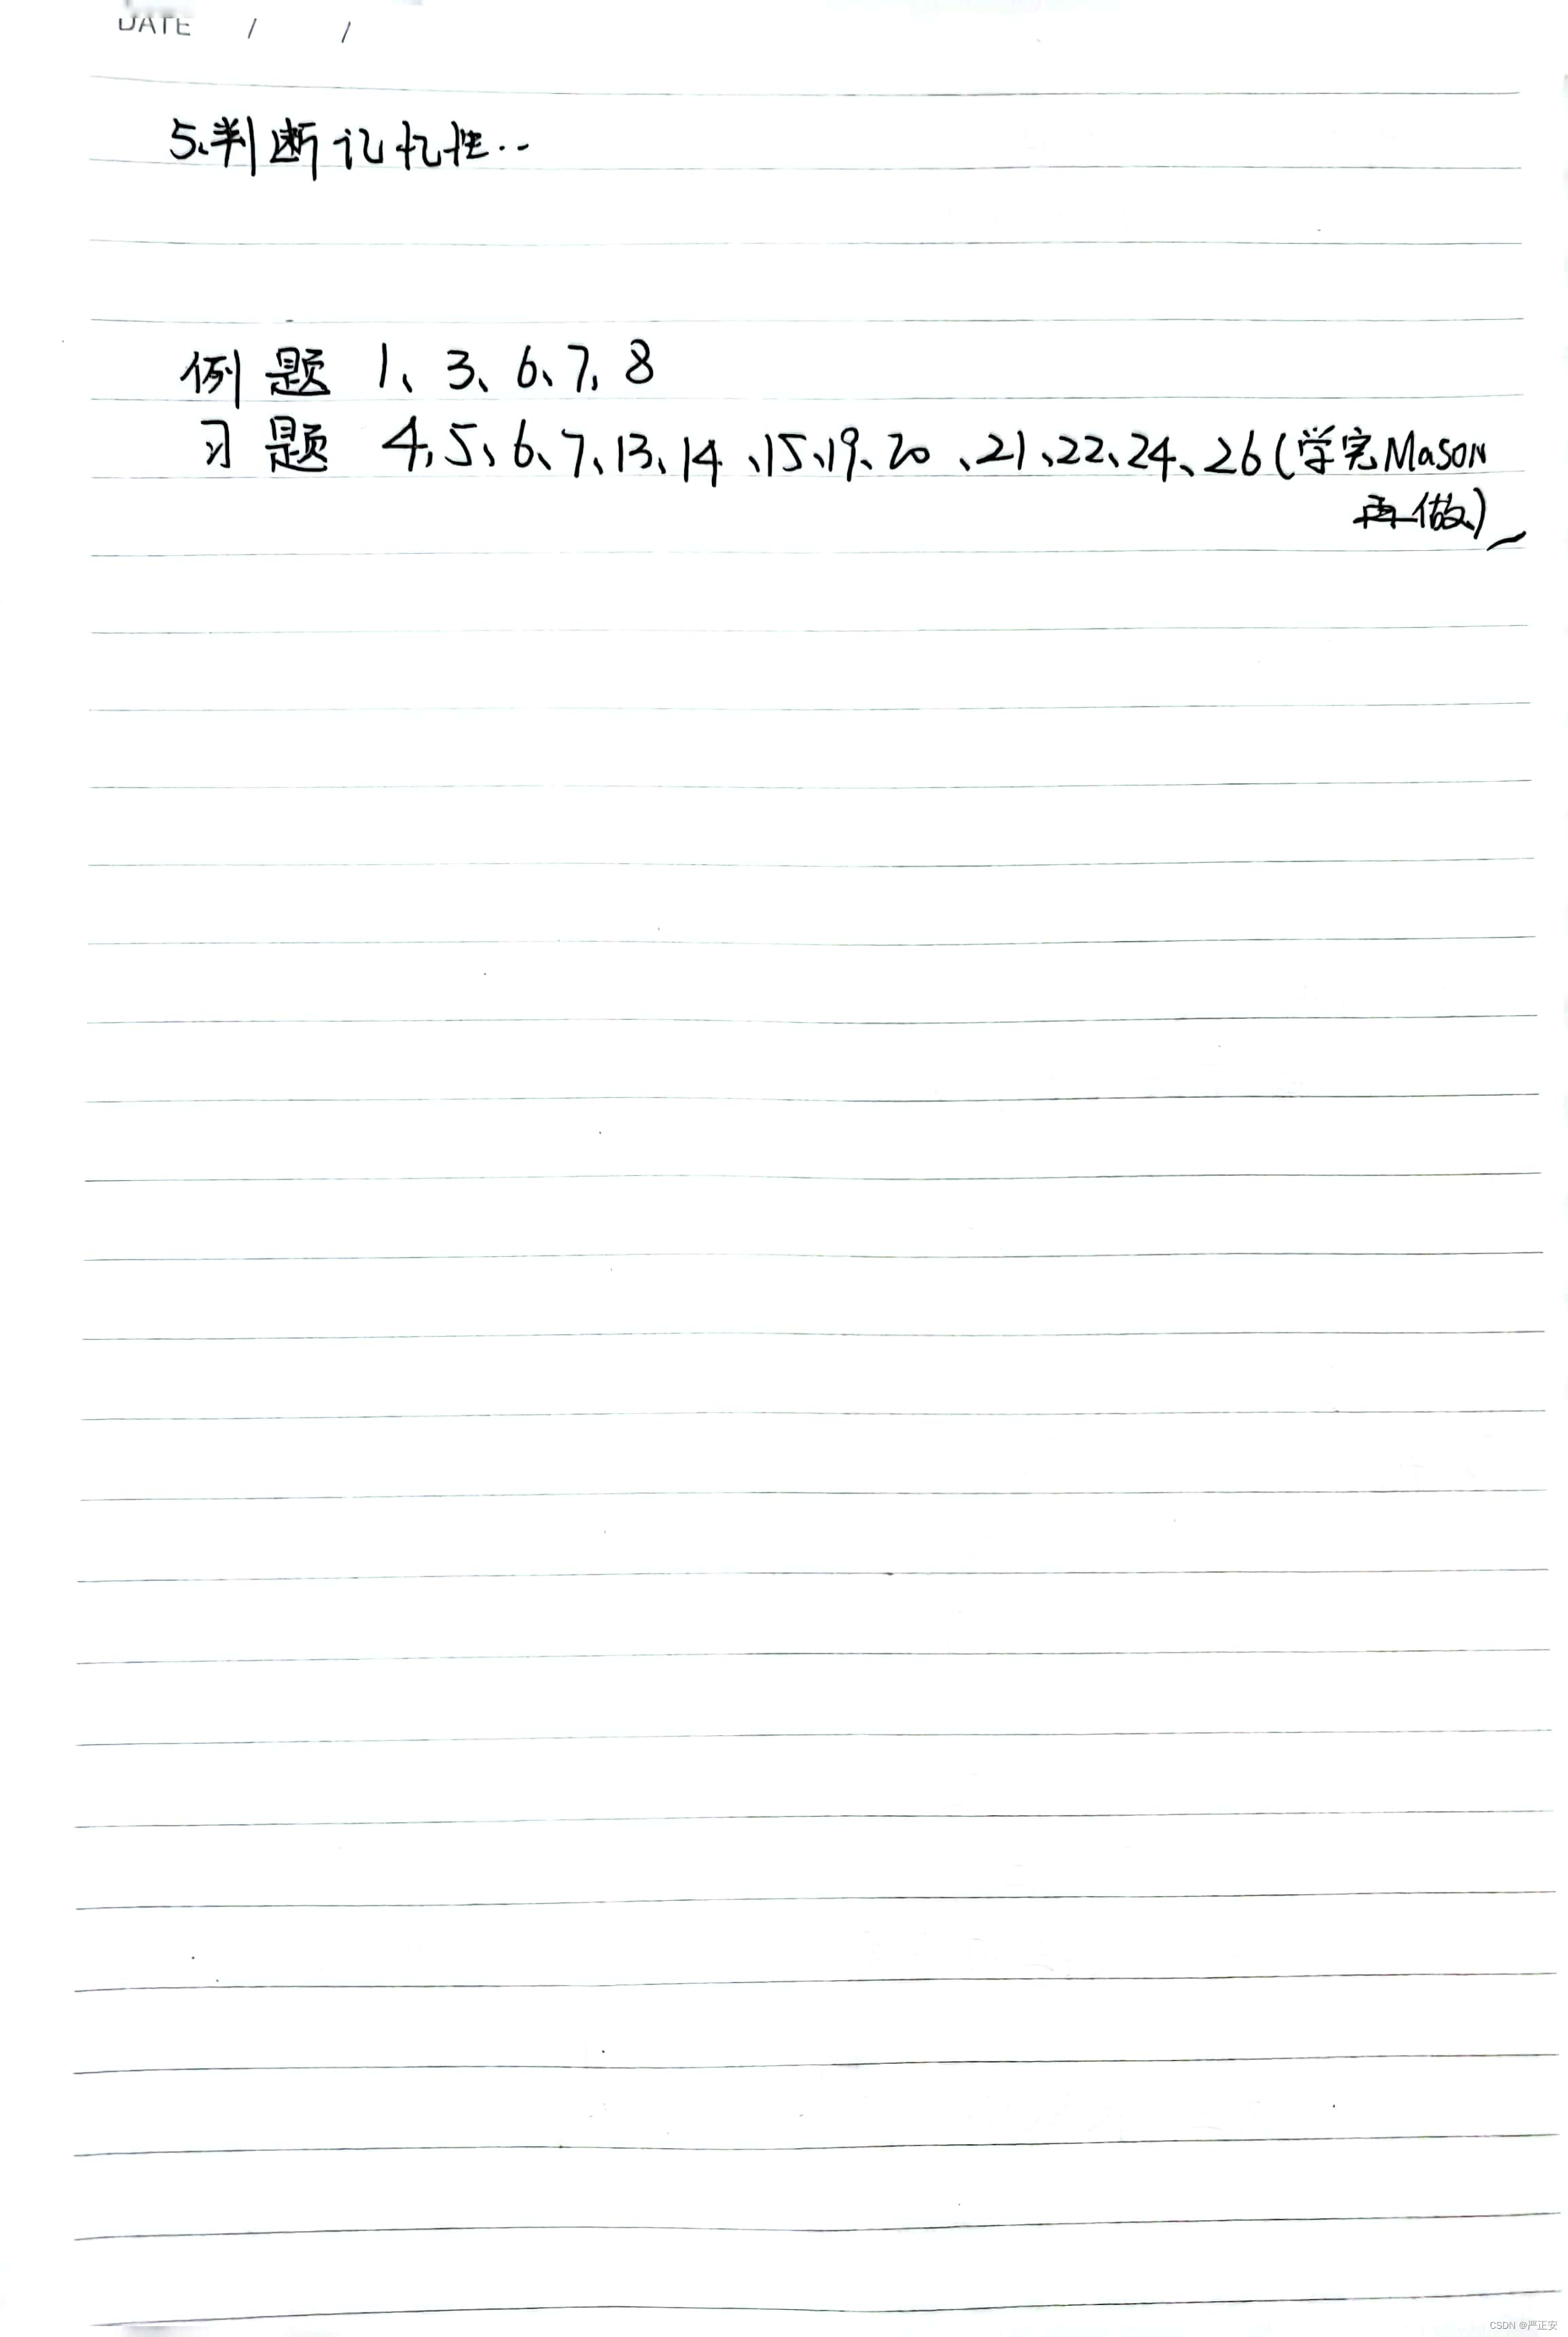 DATE / /
5、判断记忆性..
例题 1、3、6、7、8
习题 4、5、6、7、13、14、15、19、20、21、22、24、26(学完Mason
再做)
CSDN @严正安